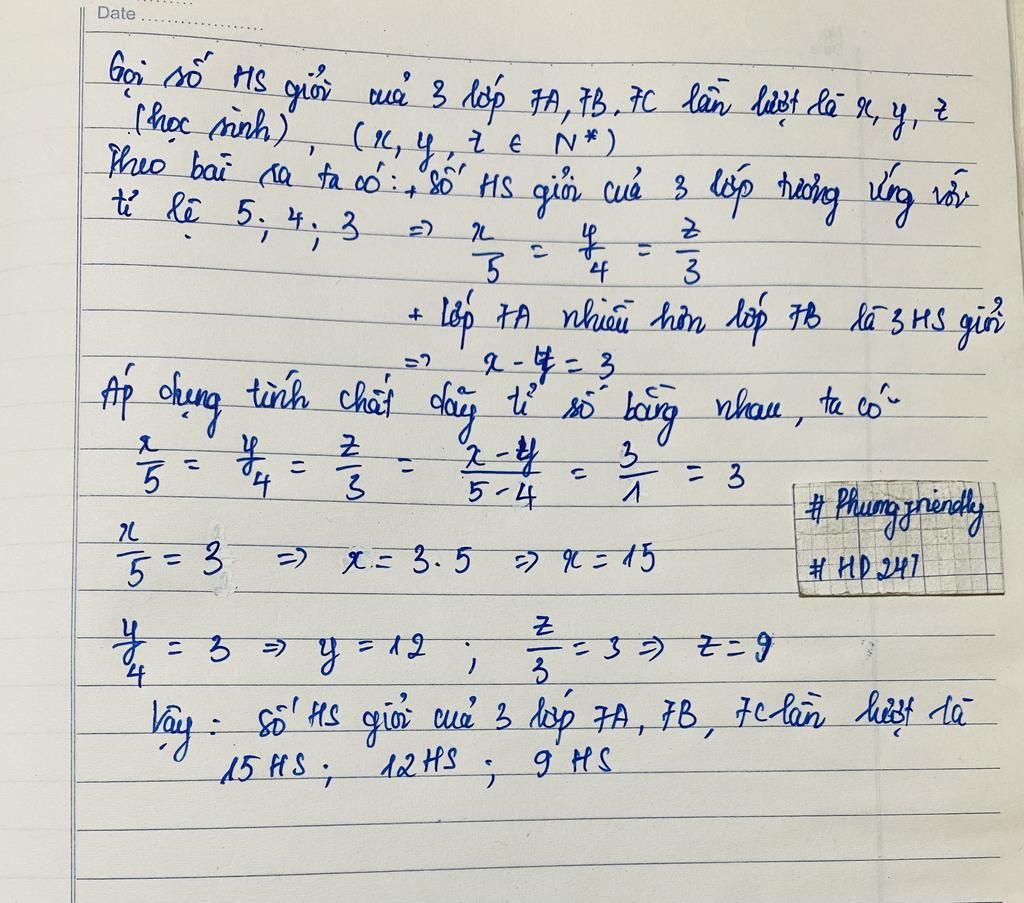 Date
Gọi số HS giỏi cuả 3 lớp 7A, 7B, 7C lần lượt là x, y, z
(học sinh), (x, y, z ∈ N*)
Theo bài ra ta có: + số HS giỏi cuả 3 lớp tương ứng với
tỉ lệ 5; 4; 3 => x/5 = y/4 = z/3
+ Lớp 7A nhiều hơn lớp 7B là 3 HS giỏi
=> x - y = 3
Áp dụng tính chất dãy tỉ số bằng nhau, ta có
x/5 = y/4 = z/3 = (x - y)/(5 - 4) = 3/1 = 3
x/5 = 3 => x = 3 . 5 => x = 15
# Phuongfriendly
# HD 247
y/4 = 3 => y = 12 ; z/3 = 3 => z = 9
Vậy : số HS giỏi cuả 3 lớp 7A, 7B, 7C lần lượt là
15 HS ; 12 HS ; 9 HS